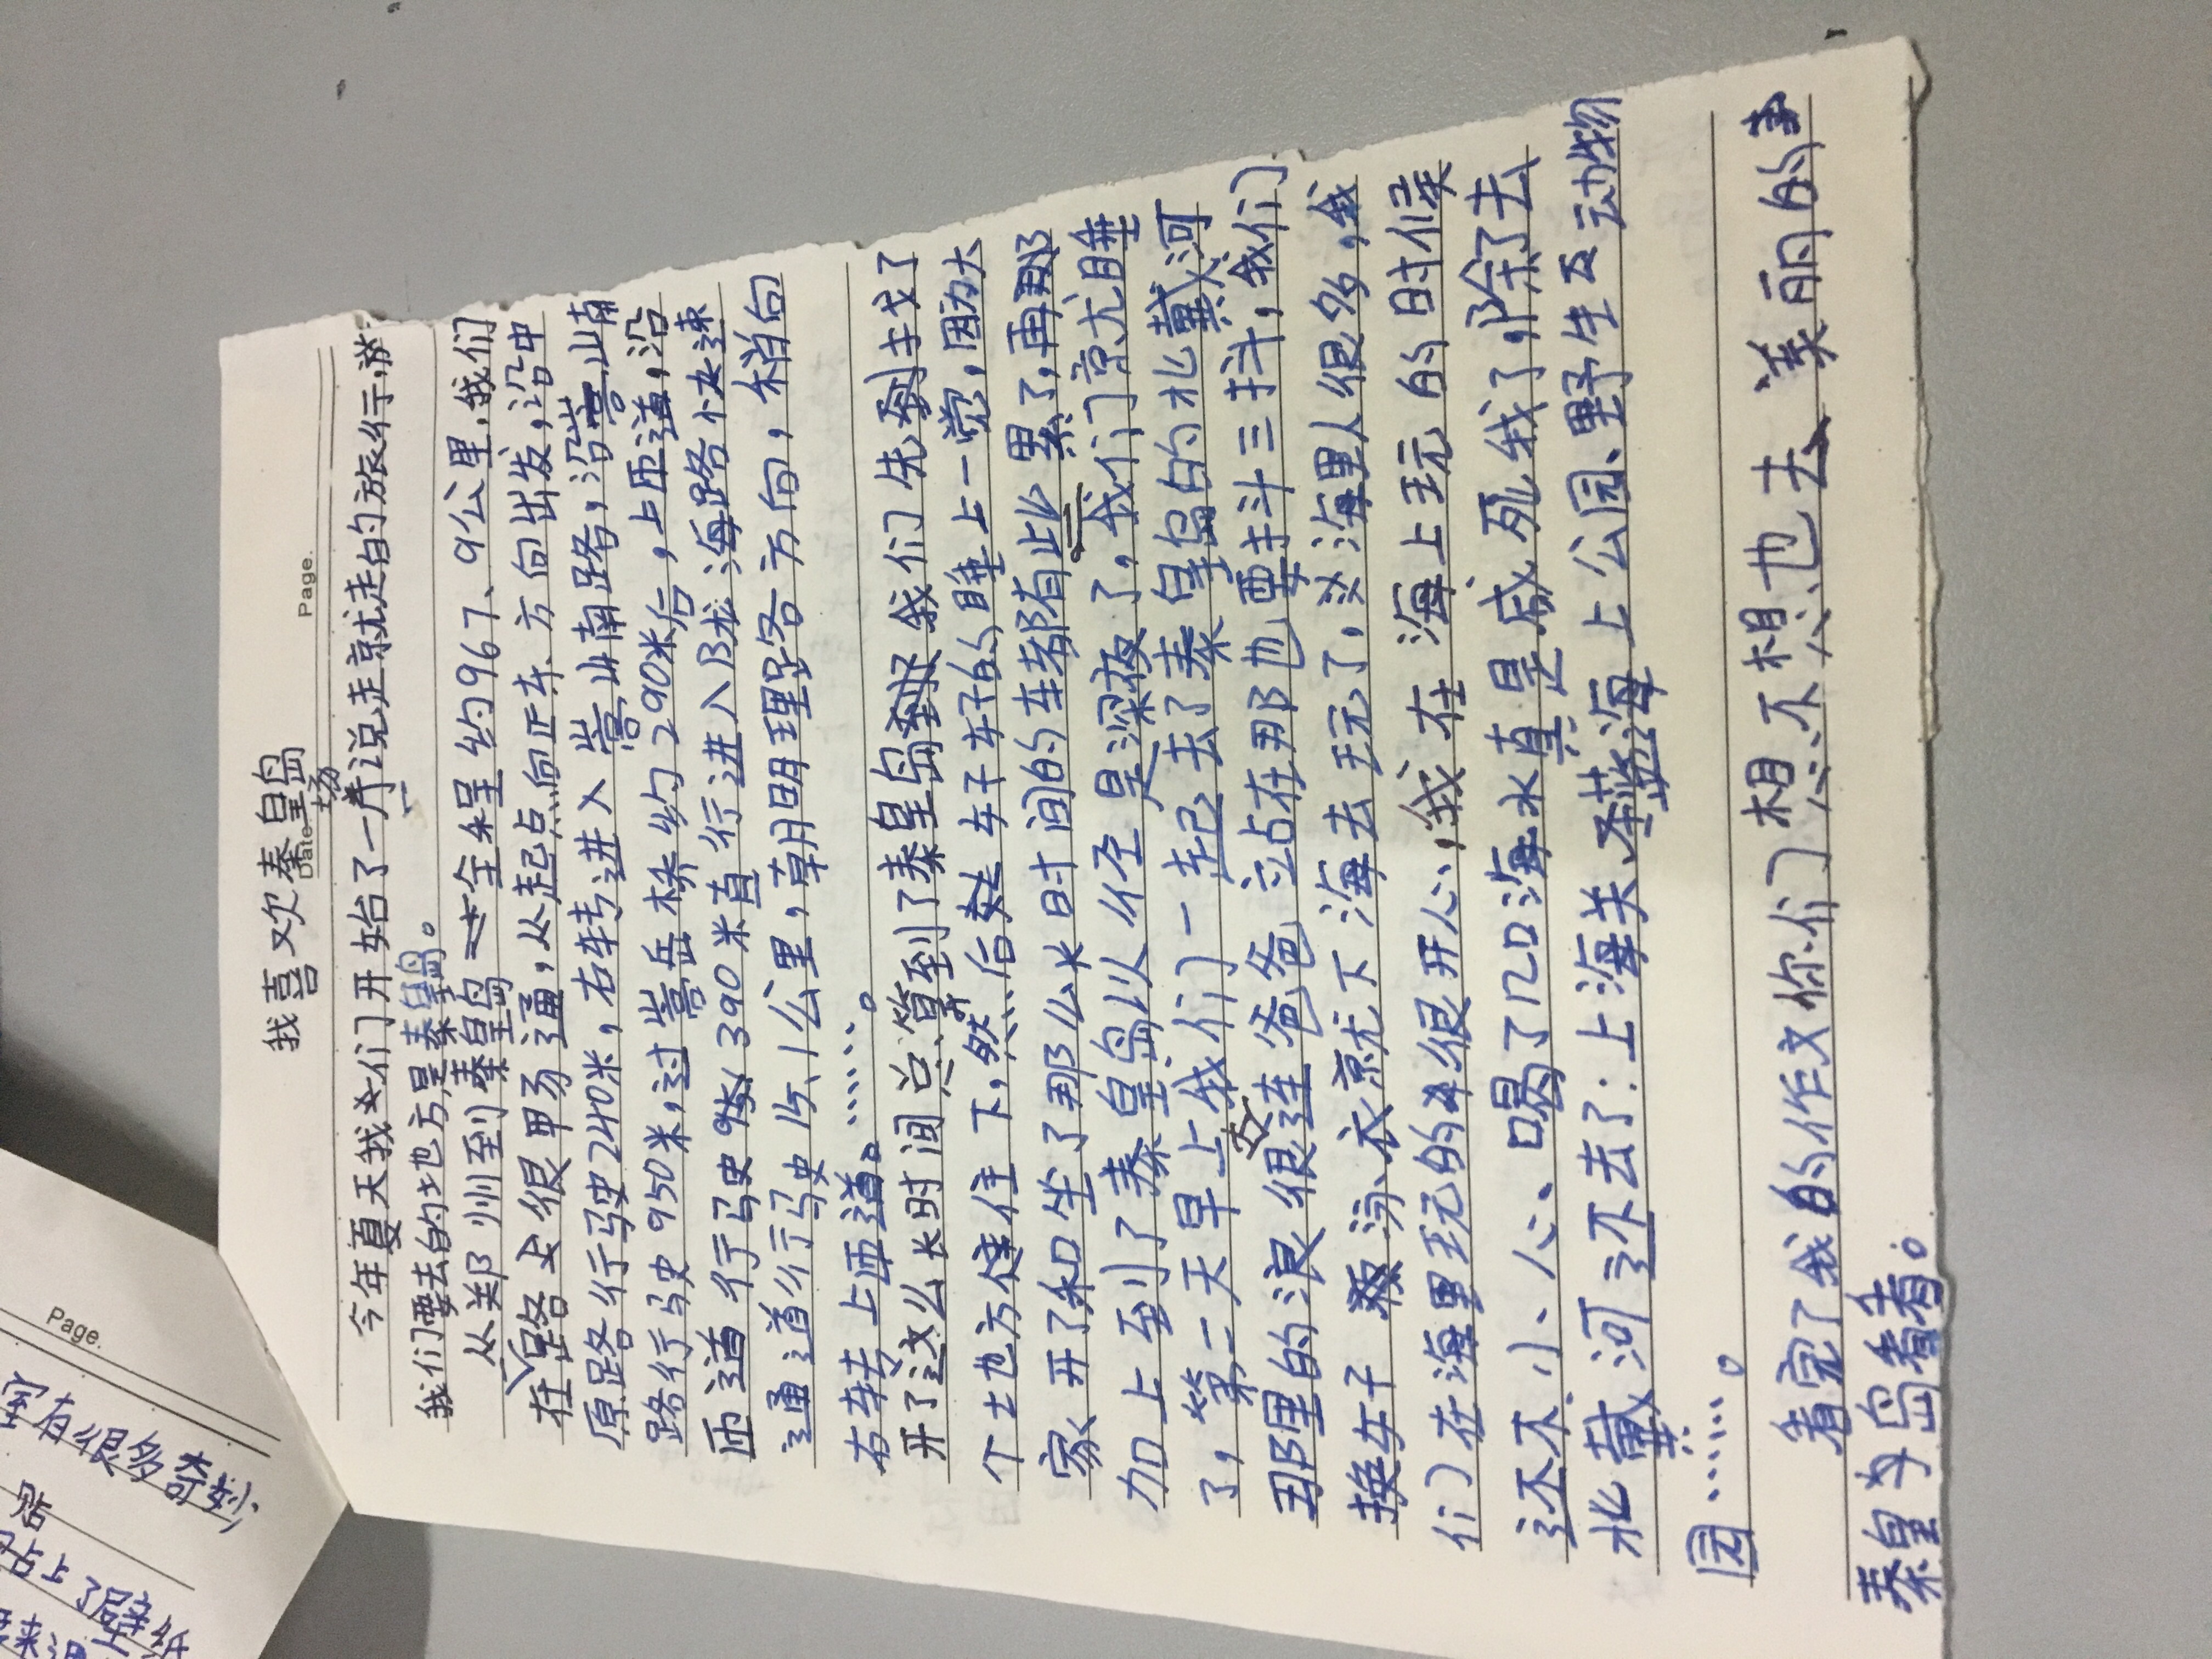 Page.
我喜欢秦皇岛
Date
今年夏天我们开始了一场说走就走的旅行,
我们要去的地方是秦皇岛。
从郑州到秦皇岛全程约967、9公里,我们
在路上很甲易通,从起点向正东方向出发,沿中
原路行驶240米,右转进入嵩山南路,沿嵩山南
路行驶950米,过嵩岳桥约290米后,上匝道,沿
匝道行驶390米直行进入B龙海路快速
通道行驶15、1公里,朝明理路方向,稍向
右转上匝道。……。
开了这么长时间总算到了秦皇岛我们先到找了
个地方住下,然后好好的睡上一觉,因为大
家开了和坐了那么长时间的车都有些累了,再那
加上到了秦皇岛以经是深夜了,我们京尤睡
了,第二天早上我们一起去了秦皇岛的北戴河
那里的浪很大连爸爸站在那也要抖三抖,我们
换好泳衣京尤下海去玩了,海里人很多,我
们在海里玩的很开心,我在海上玩的时候
还不小心、喝了几口海水真是咸死我了,除了去
北戴河还去了:上海关、圣蓝海上公园、野生动物
园……。
看完了我的作文你们想不想也去美丽的
秦皇岛看看。
Page.
有很多奇妙